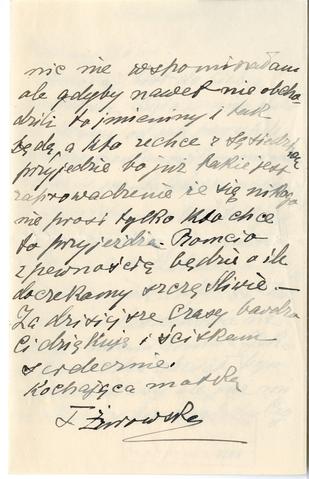 nic nie wspominałam
ale gdyby nawet nie obcho
dzili to imieniny i tak
będą, a kto zechce z sąsiedztwa
przyjedzie bo już takie jest
zaprowadzenie że się nikogo
nie prosi tylko kto chce
to przyjeżdża. Romcio
z pewnością będzie o ile
doczekamy szczęśliwie –
Za dzisiejsze czasy bardzo
Ci dziękuję i ściskam
serdecznie.
Kochająca matka
Żurowska